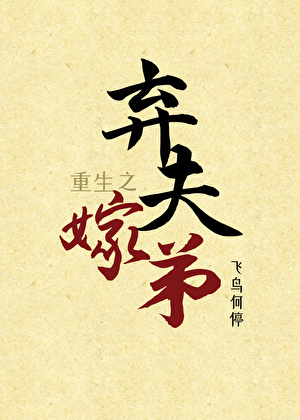 重生之
弃夫
嫁弟
飞鸟何停